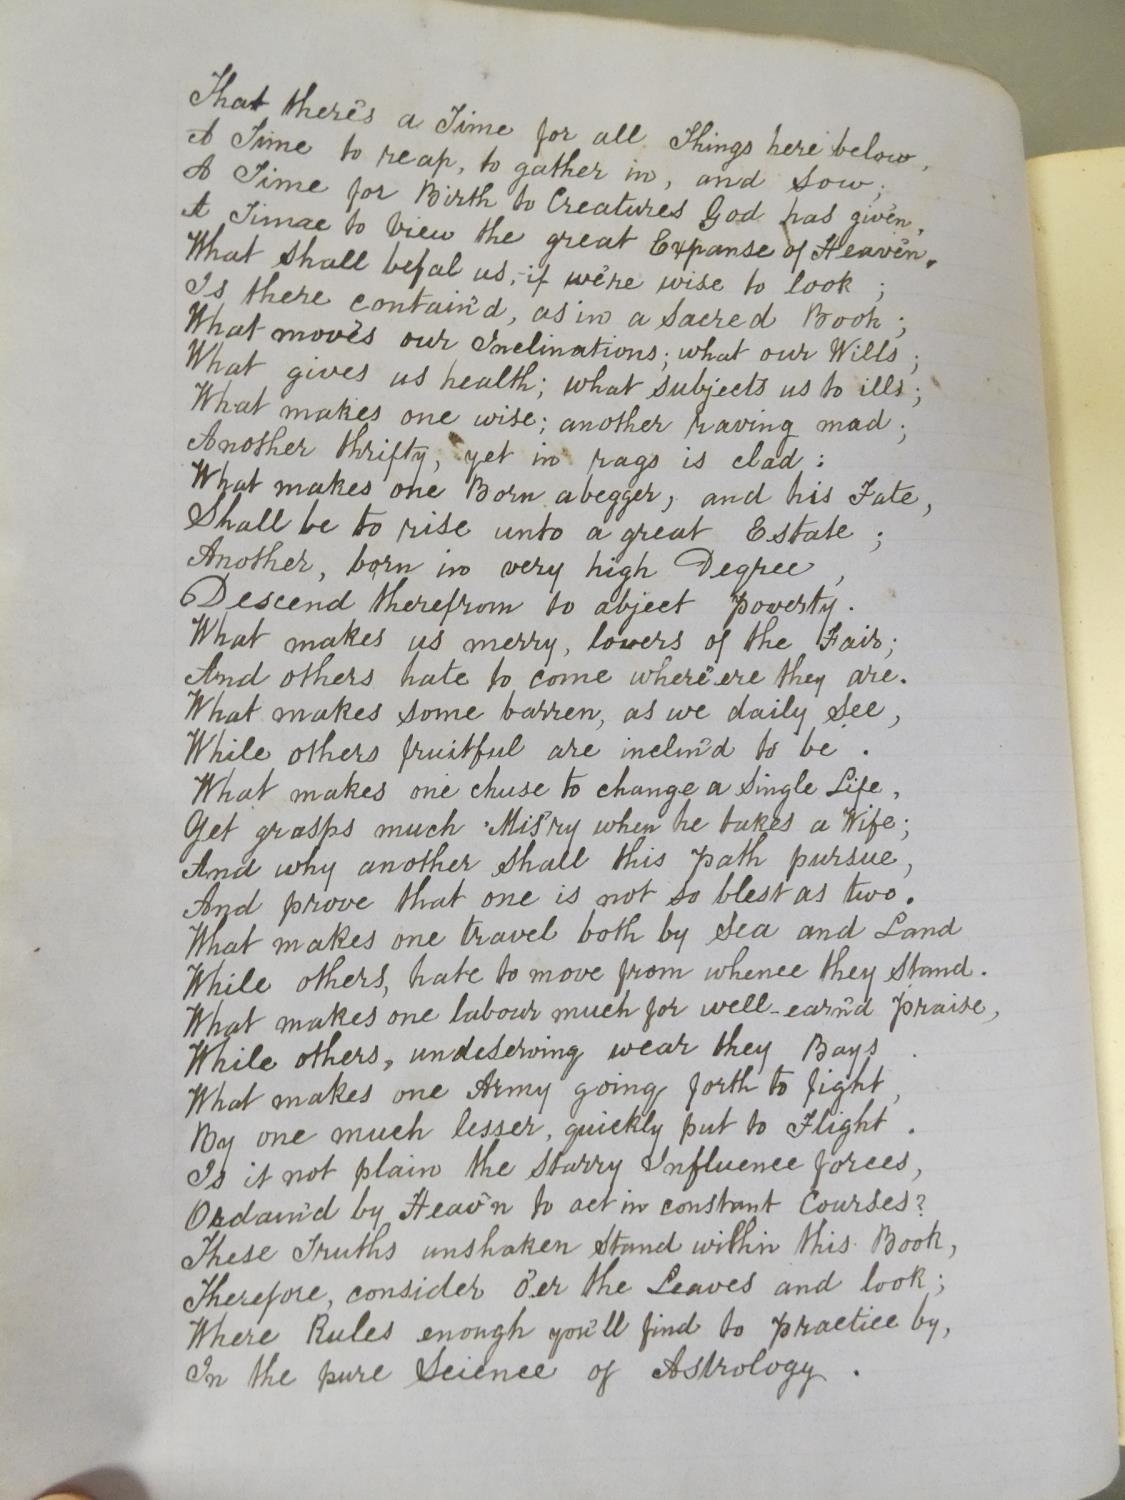 That there's a Time for all Things here below,
A Time to reap, to gather in, and Sow;
A Time for Birth to Creatures God has given,
A Timae to view the great Expanse of Heaven.
What shall befal us, if we're wise to look;
Is there contain'd, as in a Sacred Book;
What moves our Inclinations; what our Wills;
What gives us health; what subjects us to ills;
What makes one wise; another raving mad;
Another thrifty, yet in rags is clad:
What makes one Born a begger, and his Fate,
Shall be to rise unto a great Estate;
Another, born in very high Degree,
Descend therefrom to abject poverty.
What makes us merry, lovers of the Fair;
And others hate to come where'ere they are.
What makes some barren, as we daily See,
While others fruitful are inclin'd to be.
What makes one chuse to change a Single Life,
Yet grasps much Mis'ry when he takes a Wife;
And why another Shall this path pursue,
And prove that one is not so blest as two.
What makes one travel both by Sea and Land
While others, hate to move from whence they Stand.
What makes one labour much for well-earn'd praise,
While others, undeserving wear they Bays.
What makes one Army going forth to fight,
By one much lesser, quickly put to Flight.
Is it not plain the Starry Influence forces,
Ordain'd by Heav'n to act in constant Courses?
These Truths unshaken Stand within this Book,
Therefore, consider o'er the Leaves and look;
Where Rules enough you'll find to practice by,
In the pure Science of Astrology.